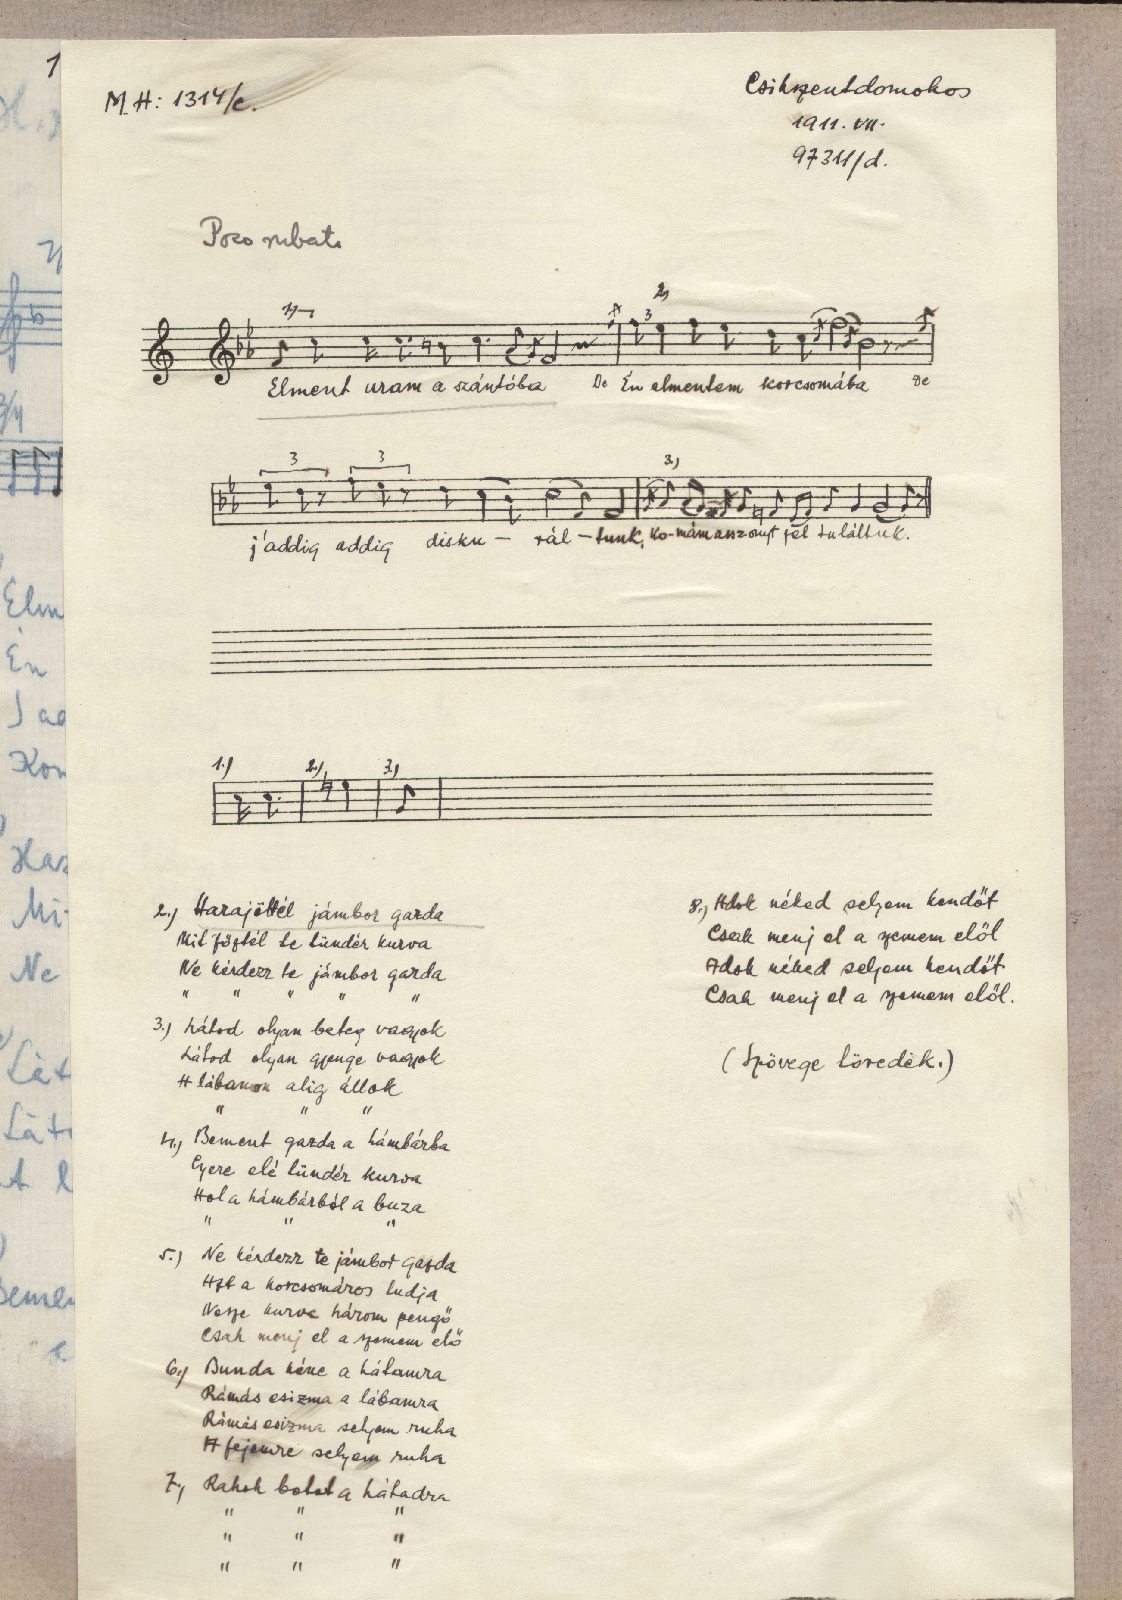 1
M.H: 1314/c.
Csikszentdomokos
1911. VII.
97311/d.
Poco rubato
1)
2)
3
Elment uram a szántóba De Én elmentem korcsomába De
3 3 3.)
j'addig addig disku — rál — tunk, ko-mámasszonyt fel találtuk.
1.) 2.) 3.)
2.) Harajöttél jámbor gazda
Mit főztél te tündér kurva
Ne kérdezz te jámbor gazda
" " " " "
3.) Látod olyan beteg vagyok
Látod olyan gyenge vagyok
A lábamon alig állok
" " "
4.) Bement gazda a hámbárba
Gyere elé tündér kurva
Hol a hámbárból a buza
" " "
5.) Ne kérdezz te jámbor gazda
Azt a korcsomáros tudja
Nesze kurva három pengő
Csak menj el a szemem elő
6.) Bunda kéne a hátamra
Rámás csizma a lábamra
Rámás csizma selyem ruha
A fejemre selyem ruha
7.) Rakok botot a hátadra
" " "
" " "
" " "
8.) Adok néked selyem kendőt
Csak menj el a szemem elől
Adok néked selyem kendőt
Csak menj el a szemem elől.
(Szövege töredék.)
3/4
Elm
Én
J ad
Kom
Haz
Mi
Ne
Lát
Láto
A l
Bemen